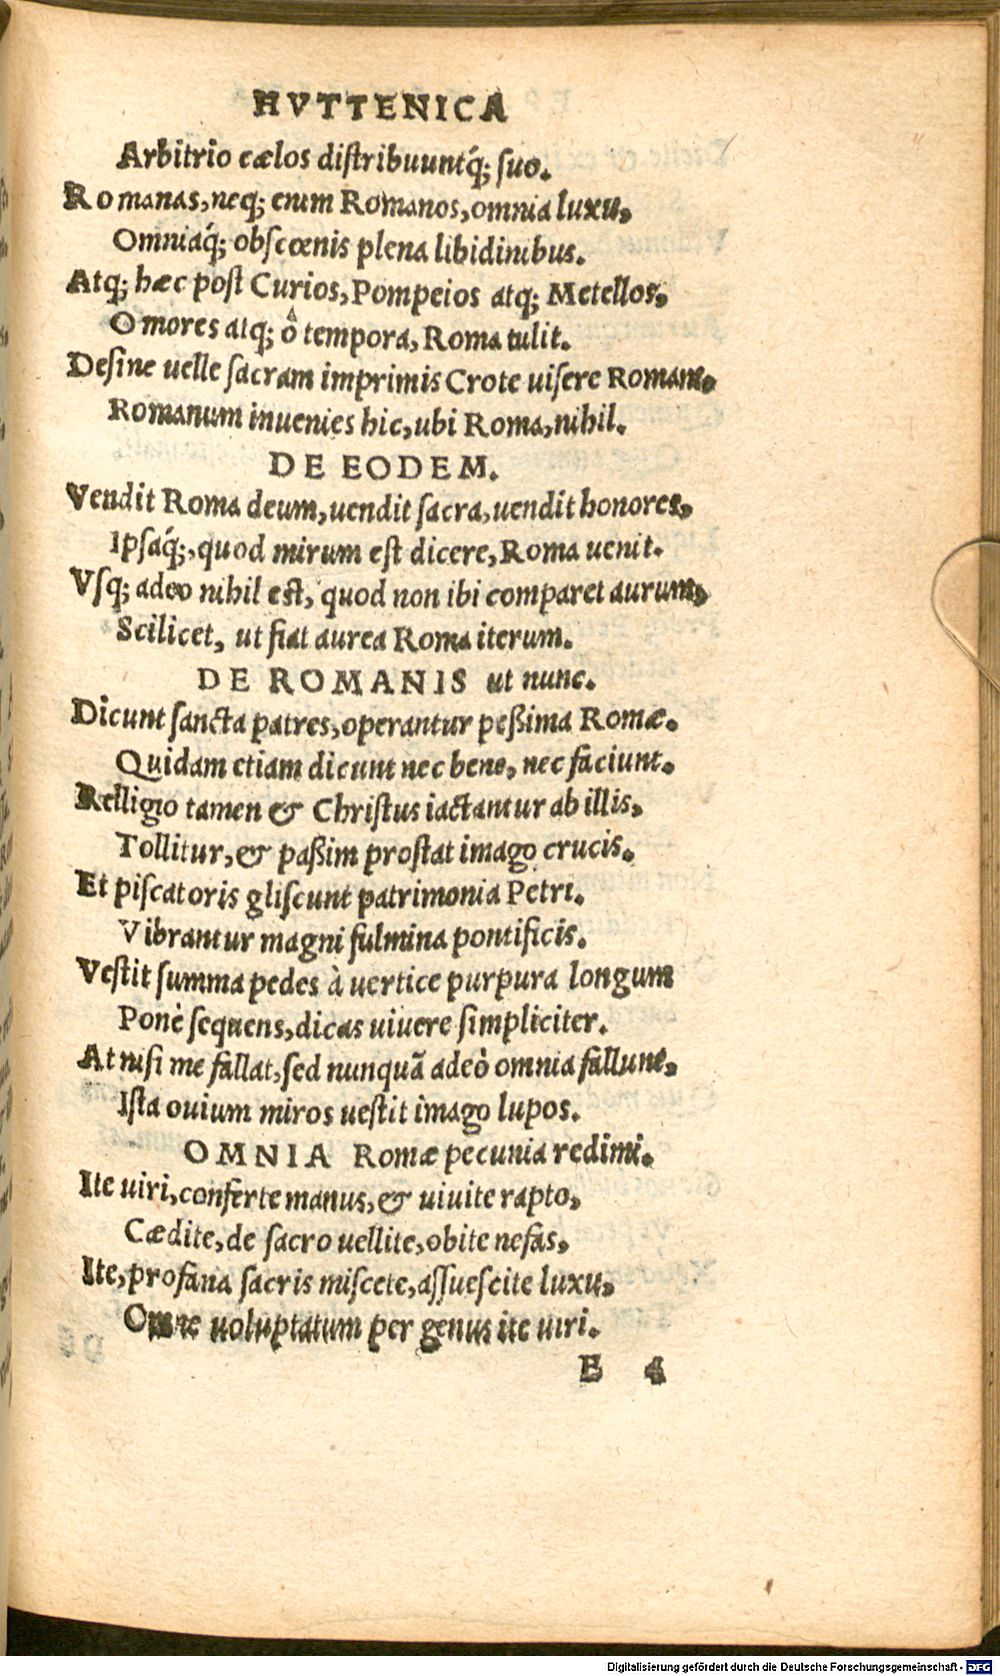 HVTTENICA
Arbitrio cælos diſtribuuntq́; ſuo.
Romanas, neq; enim Romanos, omnia luxu,
Omniaq́; obſcœnis plena libidinibus.
Atq; hæc poſt Curios, Pompeios atq; Metellos,
O mores atq; ô tempora, Roma tulit.
Deſine uelle ſacram imprimis Crote uiſere Romam,
Romanum inuenies hic, ubi Roma, nihil.
DE EODEM.
Vendit Roma deum, uendit ſacra, uendit honores,
Ipſaq́;, quod mirum eſt dicere, Roma uenit.
Vſq; adeo nihil eſt, quod non ibi comparet aurum,
Scilicet, ut fiat aurea Roma iterum.
DE ROMANIS ut nunc.
Dicunt ſancta patres, operantur peßima Romæ.
Quidam etiam dicunt nec bene, nec faciunt.
Relligio tamen & Chriſtus iactantur ab illis,
Tollitur, & paßim proſtat imago crucis.
Et piſcatoris gliſcunt patrimonia Petri.
Vibrantur magni fulmina pontificis.
Veſtit ſumma pedes à uertice purpura longum
Ponè ſequens, dicas uiuere ſimpliciter.
At niſi me fallat, ſed nunquã adeò omnia fallunt,
Iſta ouium miros ueſtit imago lupos.
OMNIA Romæ pecunia redimi.
Ite uiri, conferte manus, & uiuite rapto,
Cædite, de ſacro uellite, obite nefas,
Ite, profana ſacris miſcete, aſſueſcite luxu,
Omne uoluptatum per genus ite uiri.
E 4
Digitalisierung gefördert durch die Deutsche Forschungsgemeinschaft - DFG